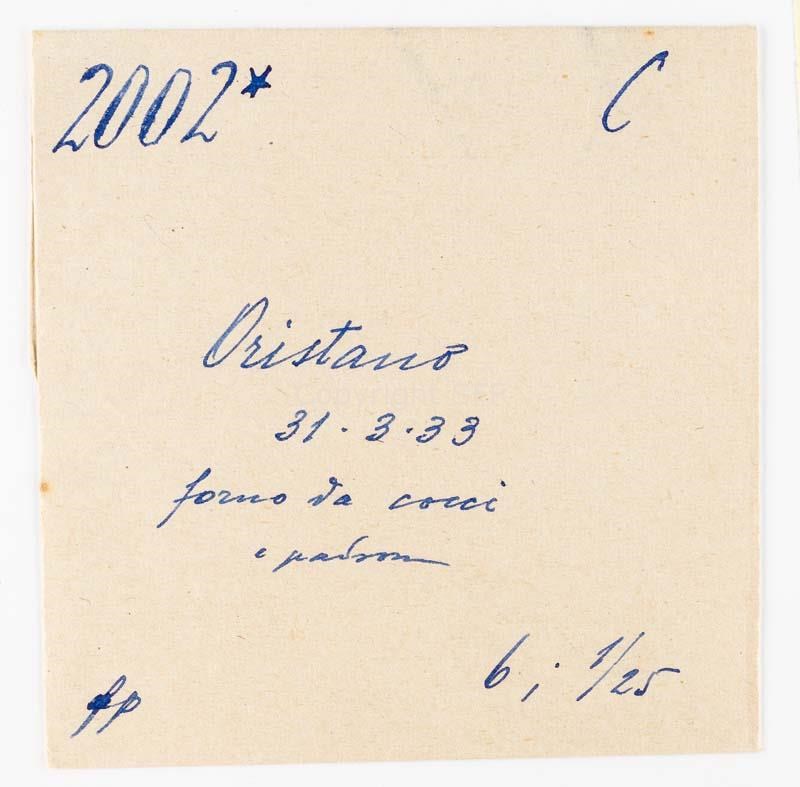 2002* C
Oristano
31.3.33
forno da cocci
e padrone
fp
6; 1/25